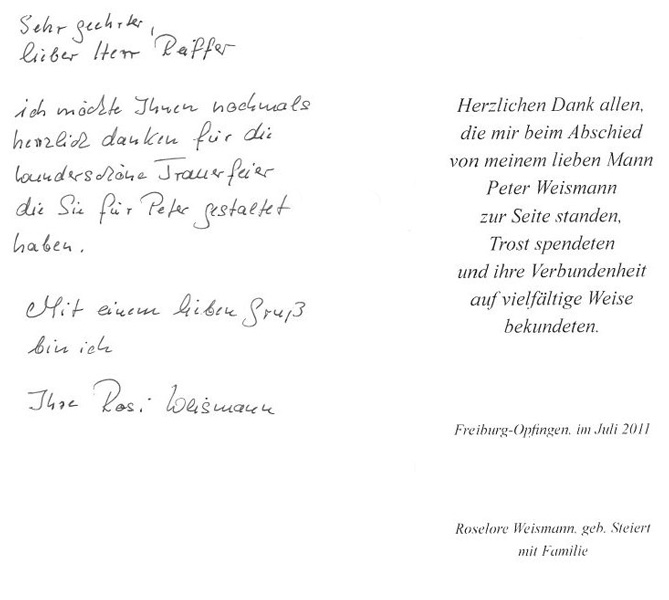 Sehr geehrter,
lieber Herr Reiffer
ich möchte Ihnen nochmals
herzlich danken für die
wunderschöne Trauerfeier
die Sie für Peter gestaltet
haben.
Mit einem lieben Gruß
bin ich
Ihre Rosi Weismann
Herzlichen Dank allen,
die mir beim Abschied
von meinem lieben Mann
Peter Weismann
zur Seite standen,
Trost spendeten
und ihre Verbundenheit
auf vielfältige Weise
bekundeten.
Freiburg-Opfingen, im Juli 2011
Roselore Weismann, geb. Steiert
mit Familie